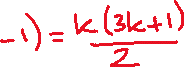 -1) = k(3k+1)/2